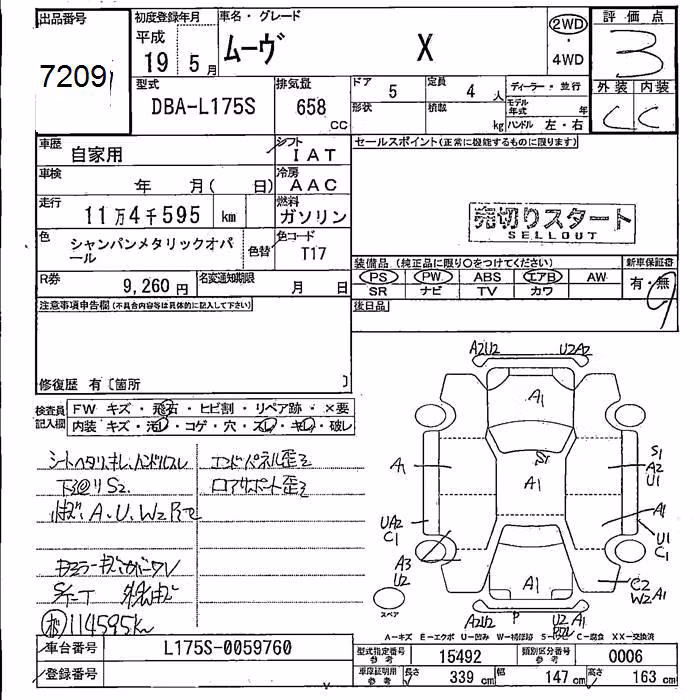 出品番号
7209
初度登録年月
平成
19 5月
車名・グレード
ムーヴ X
2WD
・
4WD
評価点
3
外装 内装
C C
型式
DBA-L175S
排気量
658
CC
ドア 5
定員 4人
形状
積載 kg
ディーラー・並行
モデル年式 年
ハンドル 左・右
車歴
自家用
シフト
IAT
車検
年 月( 日)
冷房
AAC
走行
11万4千595 km
燃料
ガソリン
色
シャンパンメタリックオパール
色替
色コード
T17
R券
9,260円
名変通知期限
月 日
セールスポイント(正常に機能するものに限ります)
売切りスタート
SELLOUT
装備品(純正品に限り○をつけてください)
PS PW ABS エアB AW
SR ナビ TV カワ
新車保証書
有・無
後日品
注意事項申告欄(不具合内容等は具体的に記入して下さい)
修復歴 有〔箇所 〕
検査員記入欄
FW キズ・飛石・ヒビ割・リペア跡・×要
内装 キズ・汚れ・コゲ・穴・スレ・キレ・破レ
シートヘタリ、キレ、ハンドルスレ
エンドパネル歪ミ
下廻りS2.
ロアサポート歪ミ
A、U、W2
114595km
A2U2 U2A2
A1
A1
A1
S1
A2
U1
A1
UA2
C1
A1
U1
C1
A3
U2
C2
W2A1
A1
スペア
A2U2 P U2 A1
A-キズ E-エクボ U-凹み W-補修跡 S-サビ C-腐食 XX-交換済
車台番号
L175S-0059760
登録番号
型式指定番号 参考
15492
類別区分番号 参考
0006
車庫証明用 参考
長さ 339cm
幅 147cm
高さ 163cm